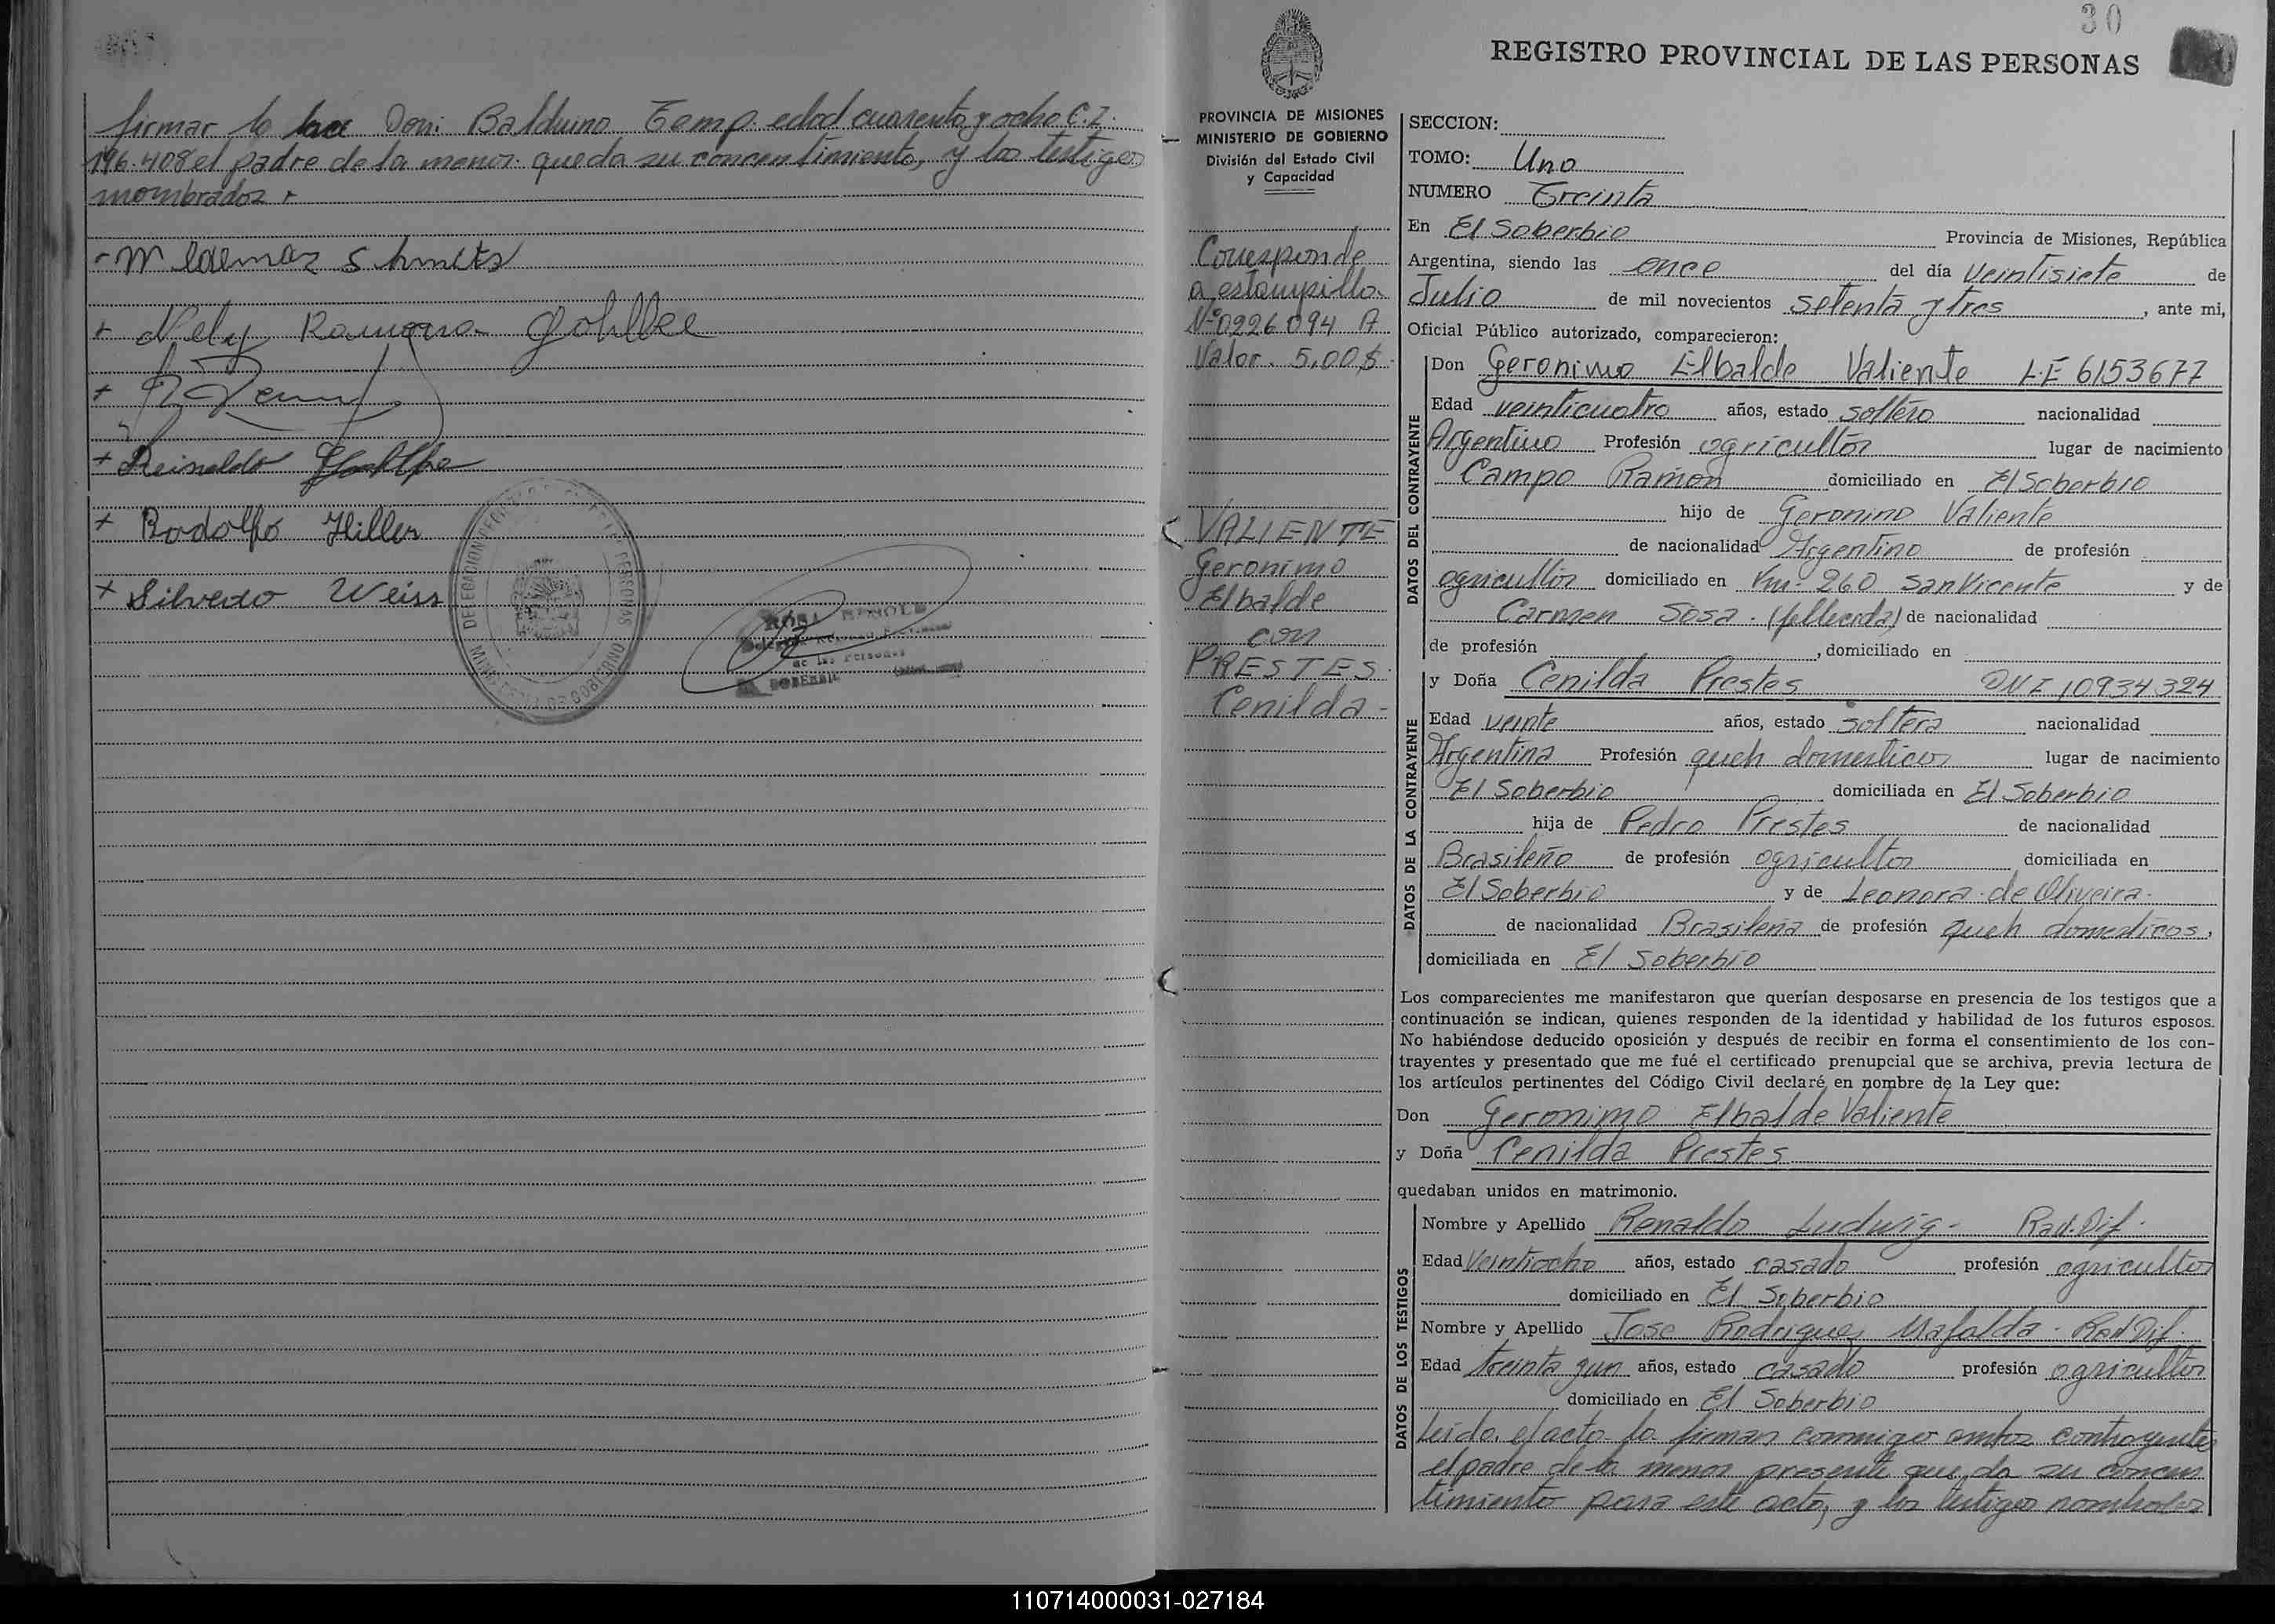 firmar lo hace Don: Balduino Temp edad cuarenta y ocho C.I.
196.408 el padre de la menor que da su concentimiento, y los testigos
nombrados
Nely Ramona
Reinaldo
Rodolfo Hiller
Silverio Weiss
30
REGISTRO PROVINCIAL DE LAS PERSONAS
PROVINCIA DE MISIONES
MINISTERIO DE GOBIERNO
División del Estado Civil
y Capacidad
Corresponde
a estampilla
Nº 0226094 A
Valor. 5,00$
VALIENTE
Geronimo
Elbalde
con
PRESTES
Cenilda-
SECCION:
TOMO: Uno
NUMERO Treinta
En El Soberbio Provincia de Misiones, República
Argentina, siendo las once del día veintisiete de
Julio de mil novecientos setenta y tres, ante mi,
Oficial Público autorizado, comparecieron:
DATOS DEL CONTRAYENTE
Don Geronimo Elbalde Valiente L.E 6153677
Edad veinticuatro años, estado soltero nacionalidad
Argentino Profesión agricultor lugar de nacimiento
Campo Ramon domiciliado en El Soberbio
hijo de Geronimo Valiente
de nacionalidad Argentino de profesión
agricultor domiciliado en Km- 260 San Vicente y de
Carmen Sosa. (fallecida) de nacionalidad
de profesión , domiciliado en
DATOS DE LA CONTRAYENTE
y Doña Cenilda Prestes DNI 10934324
Edad veinte años, estado soltera nacionalidad
Argentina Profesión queh domesticos lugar de nacimiento
El Soberbio domiciliada en El Soberbio
hija de Pedro Prestes de nacionalidad
Brasileño de profesión agricultor domiciliada en
El Soberbio y de Leonora de Oliveira-
de nacionalidad Brasileña de profesión queh domesticos,
domiciliada en El Soberbio
Los comparecientes me manifestaron que querían desposarse en presencia de los testigos que a
continuación se indican, quienes responden de la identidad y habilidad de los futuros esposos.
No habiéndose deducido oposición y después de recibir en forma el consentimiento de los con-
trayentes y presentado que me fué el certificado prenupcial que se archiva, previa lectura de
los artículos pertinentes del Código Civil declaré en nombre de la Ley que:
Don Geronimo Elbalde Valiente
y Doña Cenilda Prestes
quedaban unidos en matrimonio.
DATOS DE LOS TESTIGOS
Nombre y Apellido Renaldo Ludwig- Rad.Dif.
Edad Veintiocho años, estado casado profesión agricultor
domiciliado en El Soberbio
Nombre y Apellido Jose Rodriguez Mafalda - Rad Dif.
Edad treinta y un años, estado casado profesión agricultor
domiciliado en El Soberbio
Leida el acta la firman conmigo ambos contrayentes
el padre de la menor presente que da su concen
timiento para este acto, y los testigos nombrados
110714000031-027184